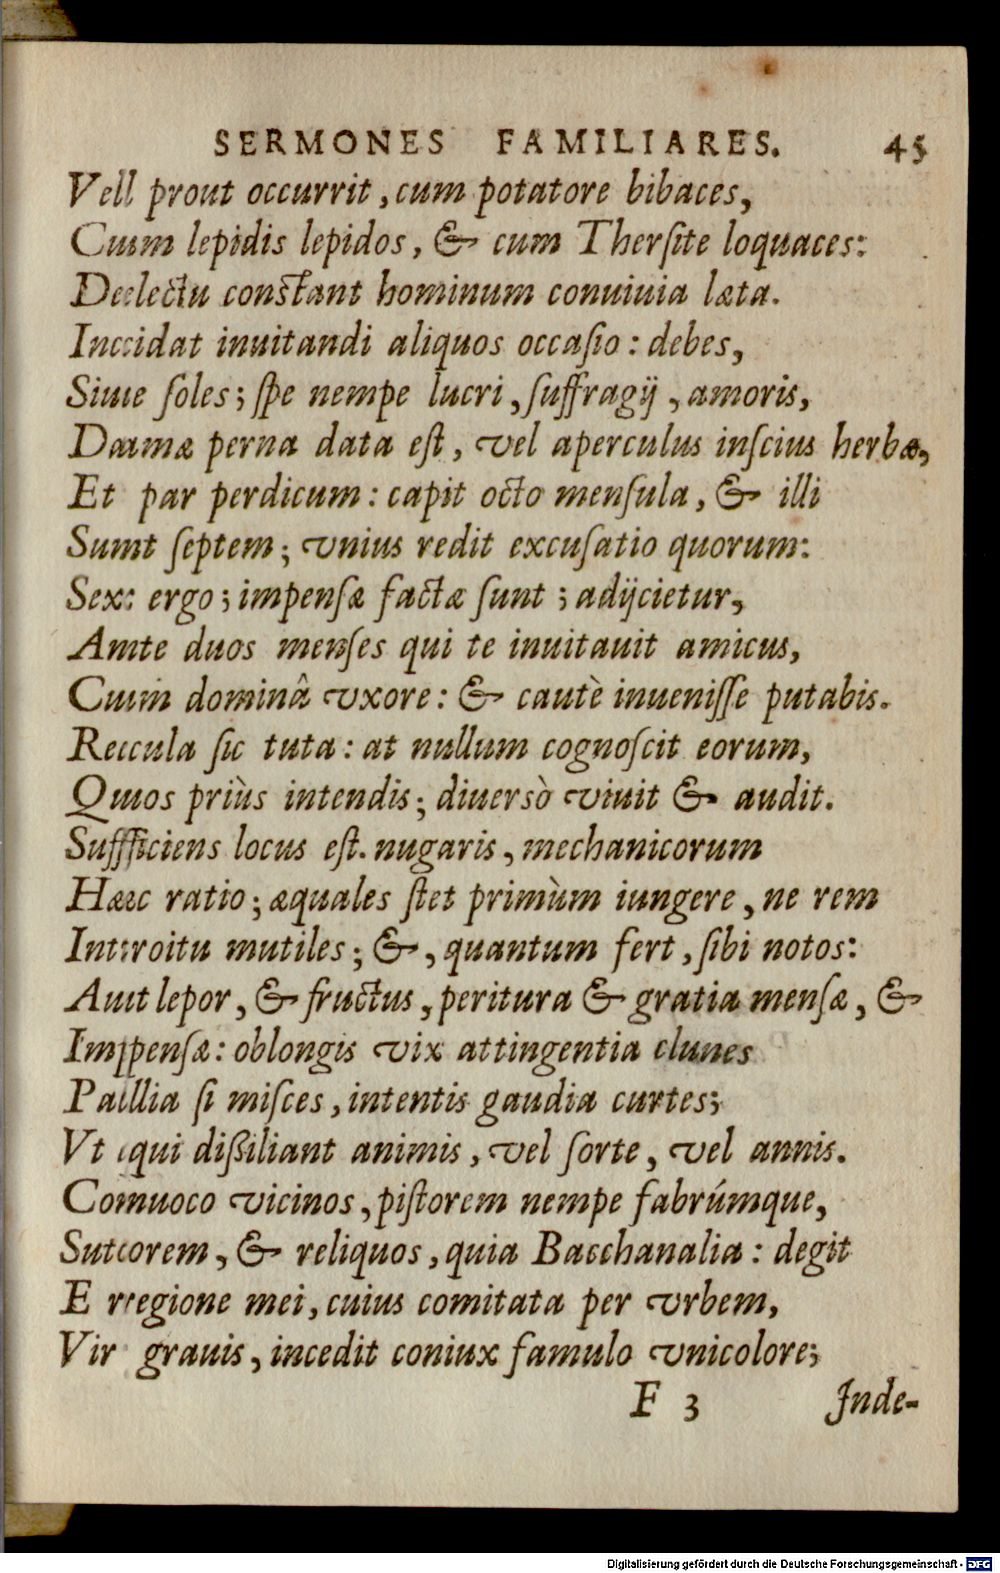 SERMONES FAMILIARES. 45
Vel prout occurrit, cum potatore bibaces,
Cum lepidis lepidos, & cum Thersite loquaces:
Delectu constant hominum conuiuia læta.
Incidat inuitandi aliquos occasio: debes,
Siue soles; spe nempe lucri, suffragij, amoris,
Damæ perna data est, vel aperculus inscius herbæ,
Et par perdicum: capit octo mensula, & illi
Sunt septem; vnius redit excusatio quorum:
Sex ergo; impensæ factæ sunt; adijcietur,
Ante duos menses qui te inuitauit amicus,
Cum dominâ vxore: & cautè inuenisse putabis.
Reccula sic tuta: at nullum cognoscit eorum,
Quos priùs intendis; diuersò viuit & audit.
Sufficiens locus est. nugaris, mechanicorum
Hæc ratio; æquales stet primùm iungere, ne rem
Introitu mutiles; &, quantum fert, sibi notos:
Aut lepor, & fructus, peritura & gratia mensæ, &
Impensæ: oblongis vix attingentia clunes
Pallia si misces, intentis gaudia curtes;
Vt qui dißiliant animis, vel sorte, vel annis.
Conuoco vicinos, pistorem nempe fabrúmque,
Sutorem, & reliquos, quia Bacchanalia: degit
E regione mei, cuius comitata per vrbem,
Vir grauis, incedit coniux famulo vnicolore;
F 3 Inde-
Digitalisierung gefördert durch die Deutsche Forschungsgemeinschaft - DFG